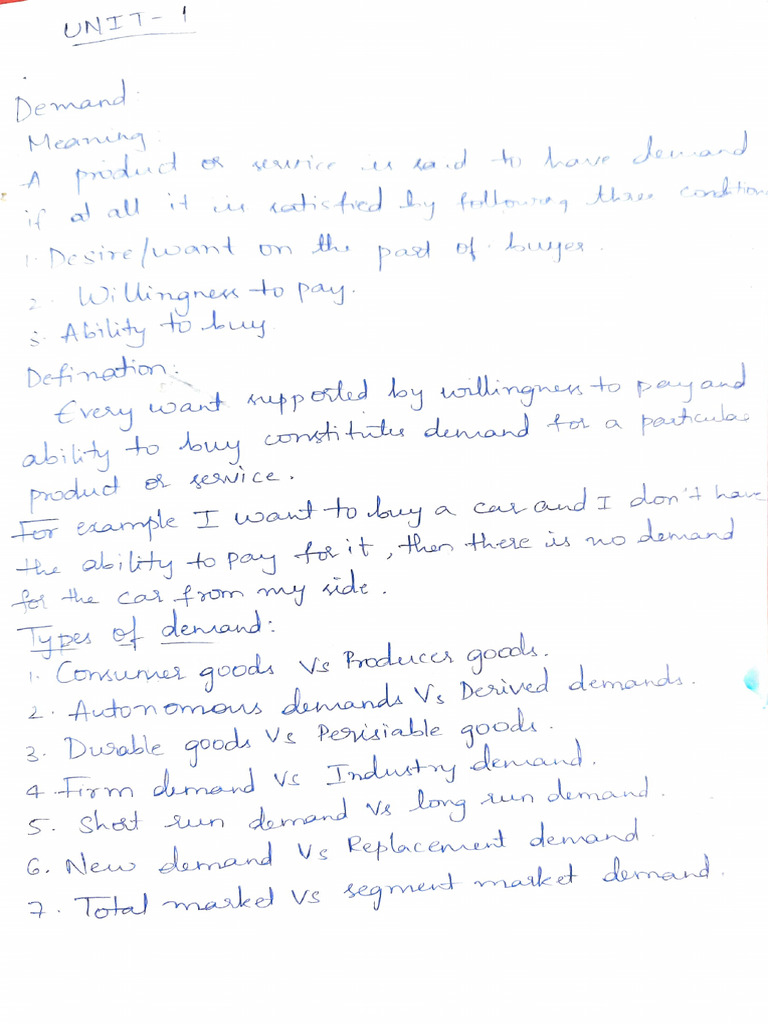 UNIT- 1
Demand
Meaning:
A product or service is said to have demand
if at all it is satisfied by following three condition
1. Desire/want on the part of buyer.
2. Willingness to pay.
3. Ability to buy
Defination:
Every want supported by willingness to pay and
ability to buy constitutes demand for a particular
product or service.
For example I want to buy a car and I don't have
the ability to pay for it, then there is no demand
for the car from my side.
Types of demand:
1. Consumer goods Vs Producers goods.
2. Autonomous demands Vs Derived demands.
3. Durable goods Vs Perisiable goods.
4. Firm demand vs Industry demand.
5. Short run demand Vs long run demand.
6. New demand Vs Replacement demand.
7. Total market vs segment market demand.